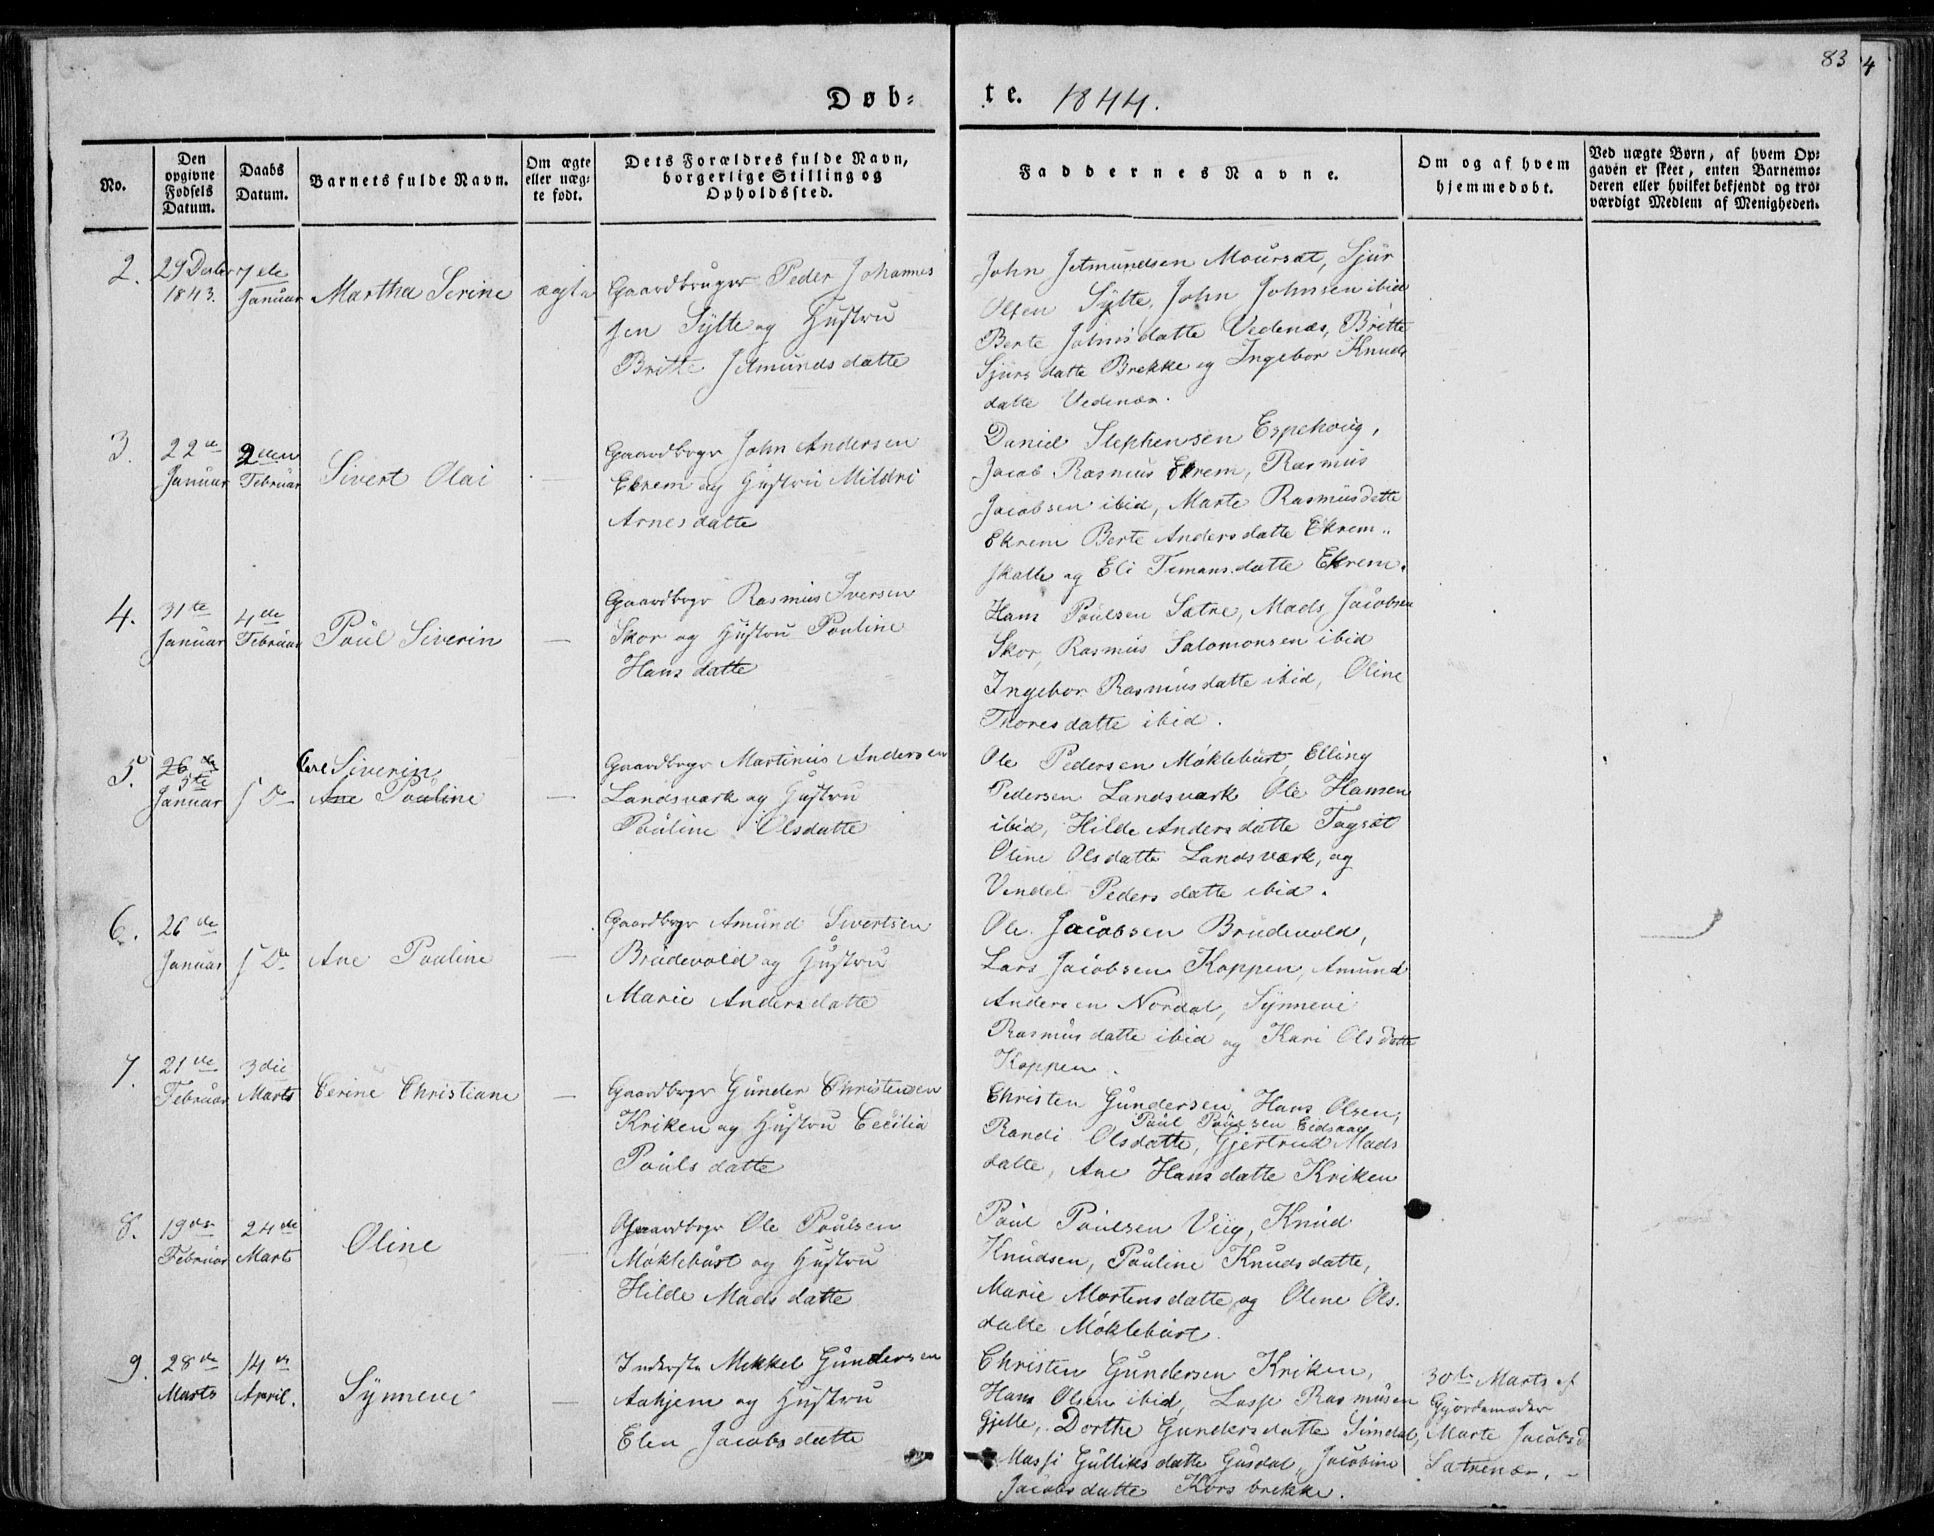 83
4
Døb-
te. 1844.
No.
Den opgivne Fødsels Datum.
Daabs Datum.
Barnets fulde Navn.
Om ægte eller uæg-te født.
Dets Forældres fulde Navn, borgerlige Stilling og Opholdssted.
Faddernes Navne.
Om og af hvem hjemmedøbt.
Ved uægte Børn, af hvem Op-gaven er skeet, enten Barnemo-deren eller hvilket bekjendt og tro-værdigt Medlem af Menigheden.
2.
29 Decbr
1843.
7de
Januar
Martha Serine
ægte
Gaardbruger Peder Johannes
sen Sylte og Hustru
Britte Jetmunds datte
John Jetmundsen Moursæt, Sjur
Olsen Sylte, John Johnsen ibid
Berte Johnsdatte Vedenæs, Britte
Sjurs datte Brekke og Ingebor Knuds
datte Vedenæs.
3.
22de
Januar
2den
Februar
Sivert Olai
—
Gaardbrgr John Andersen
Ekrem og Hustru Mildri
Arnesdatte
Daniel Stephensen Espehoug,
Jacob Rasmus Ekrem, Rasmus
Jacobsen ibid, Marte Rasmusdatte
Ekrem Berte Andersdatte Ekrem..
skatte og Eli Timansdatte Ekrem.
4.
31te
Januar
4de
Februar
Poul Siverin
—
Gaardbrgr Rasmus Iversen
Skor og Hustru Pouline
Hans datte
Hans Poulsen Satre, Mads Jacobsen
Skor, Rasmus Salomonsen ibid
Ingebor Rasmusdatte ibid, Oline
Thoresdatte ibid.
5.
26de
5te
Januar
Do
Carl Siverin
Ane Pouline
—
Gaardbrgr Martinus Andersen
Landsværk og Hustru
Pouline Olsdatte
Ole Pedersen Møklebust, Elling
Pedersen Landsværk Ole Hansen
ibid, Hilde Andersdatte Tagsæt
Oline Olsdatte Landsværk, og
Vendel Peders datte ibid.
6.
26de
Januar
Do
Ane Pouline
—
Gaardbrgr Amund Sivertsen
Brudevold og Hustru
Marie Andersdatte
Ole Jacobsen Brudevold,
Lars Jacobsen Koppen, Amund
Andersen Nordal, Synnevi
Rasmusdatte ibid og Kari Olsdatte
Koppen.
7.
21de
Februar
3die
Marts
Cerine Christiane
—
Gaardbrgr Gunder Christensen
Kriken og Hustru Cecilia
Pouls datte
Christen Gundersen, Hans Olsen,
Poul Poulsen Eidsaag
Randi Olsdatte, Gjertrud Mads
datte, Ane Hansdatte Kriken
8.
19de
Februar
24de
Marts
Oline
Gaardbrgr Ole Poulsen
Møklebust og Hustru
Hilde Mads datte
Poul Poulsen Viig, Knud
Knudsen, Pouline Knudsdatte,
Marie Mortensdatte og Oline Ols.
datte Møklebust.
9.
28de
Marts
14de
April.
Synnevi
—
Inderste Mikkel Gundersen
Aahjem og Hustru
Elen Jacobsdatte
Christen Gundersen Kriken,
Hans Olsen ibid, Lasse Rasmusen
Gjelle, Dorthe Gundersdatte Simdal,
Massi Gulliksdatte Gusdal, Jacobine
Jacobsdatte Korsbrekke.
30te Marts af
Gjordemoder
Marte Jacobsd
Satrenæs.